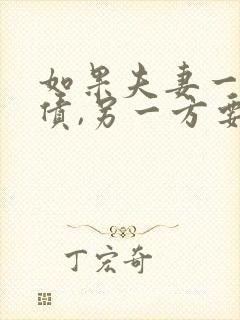 如果夫妻一
债,另一方要
丁宏奇